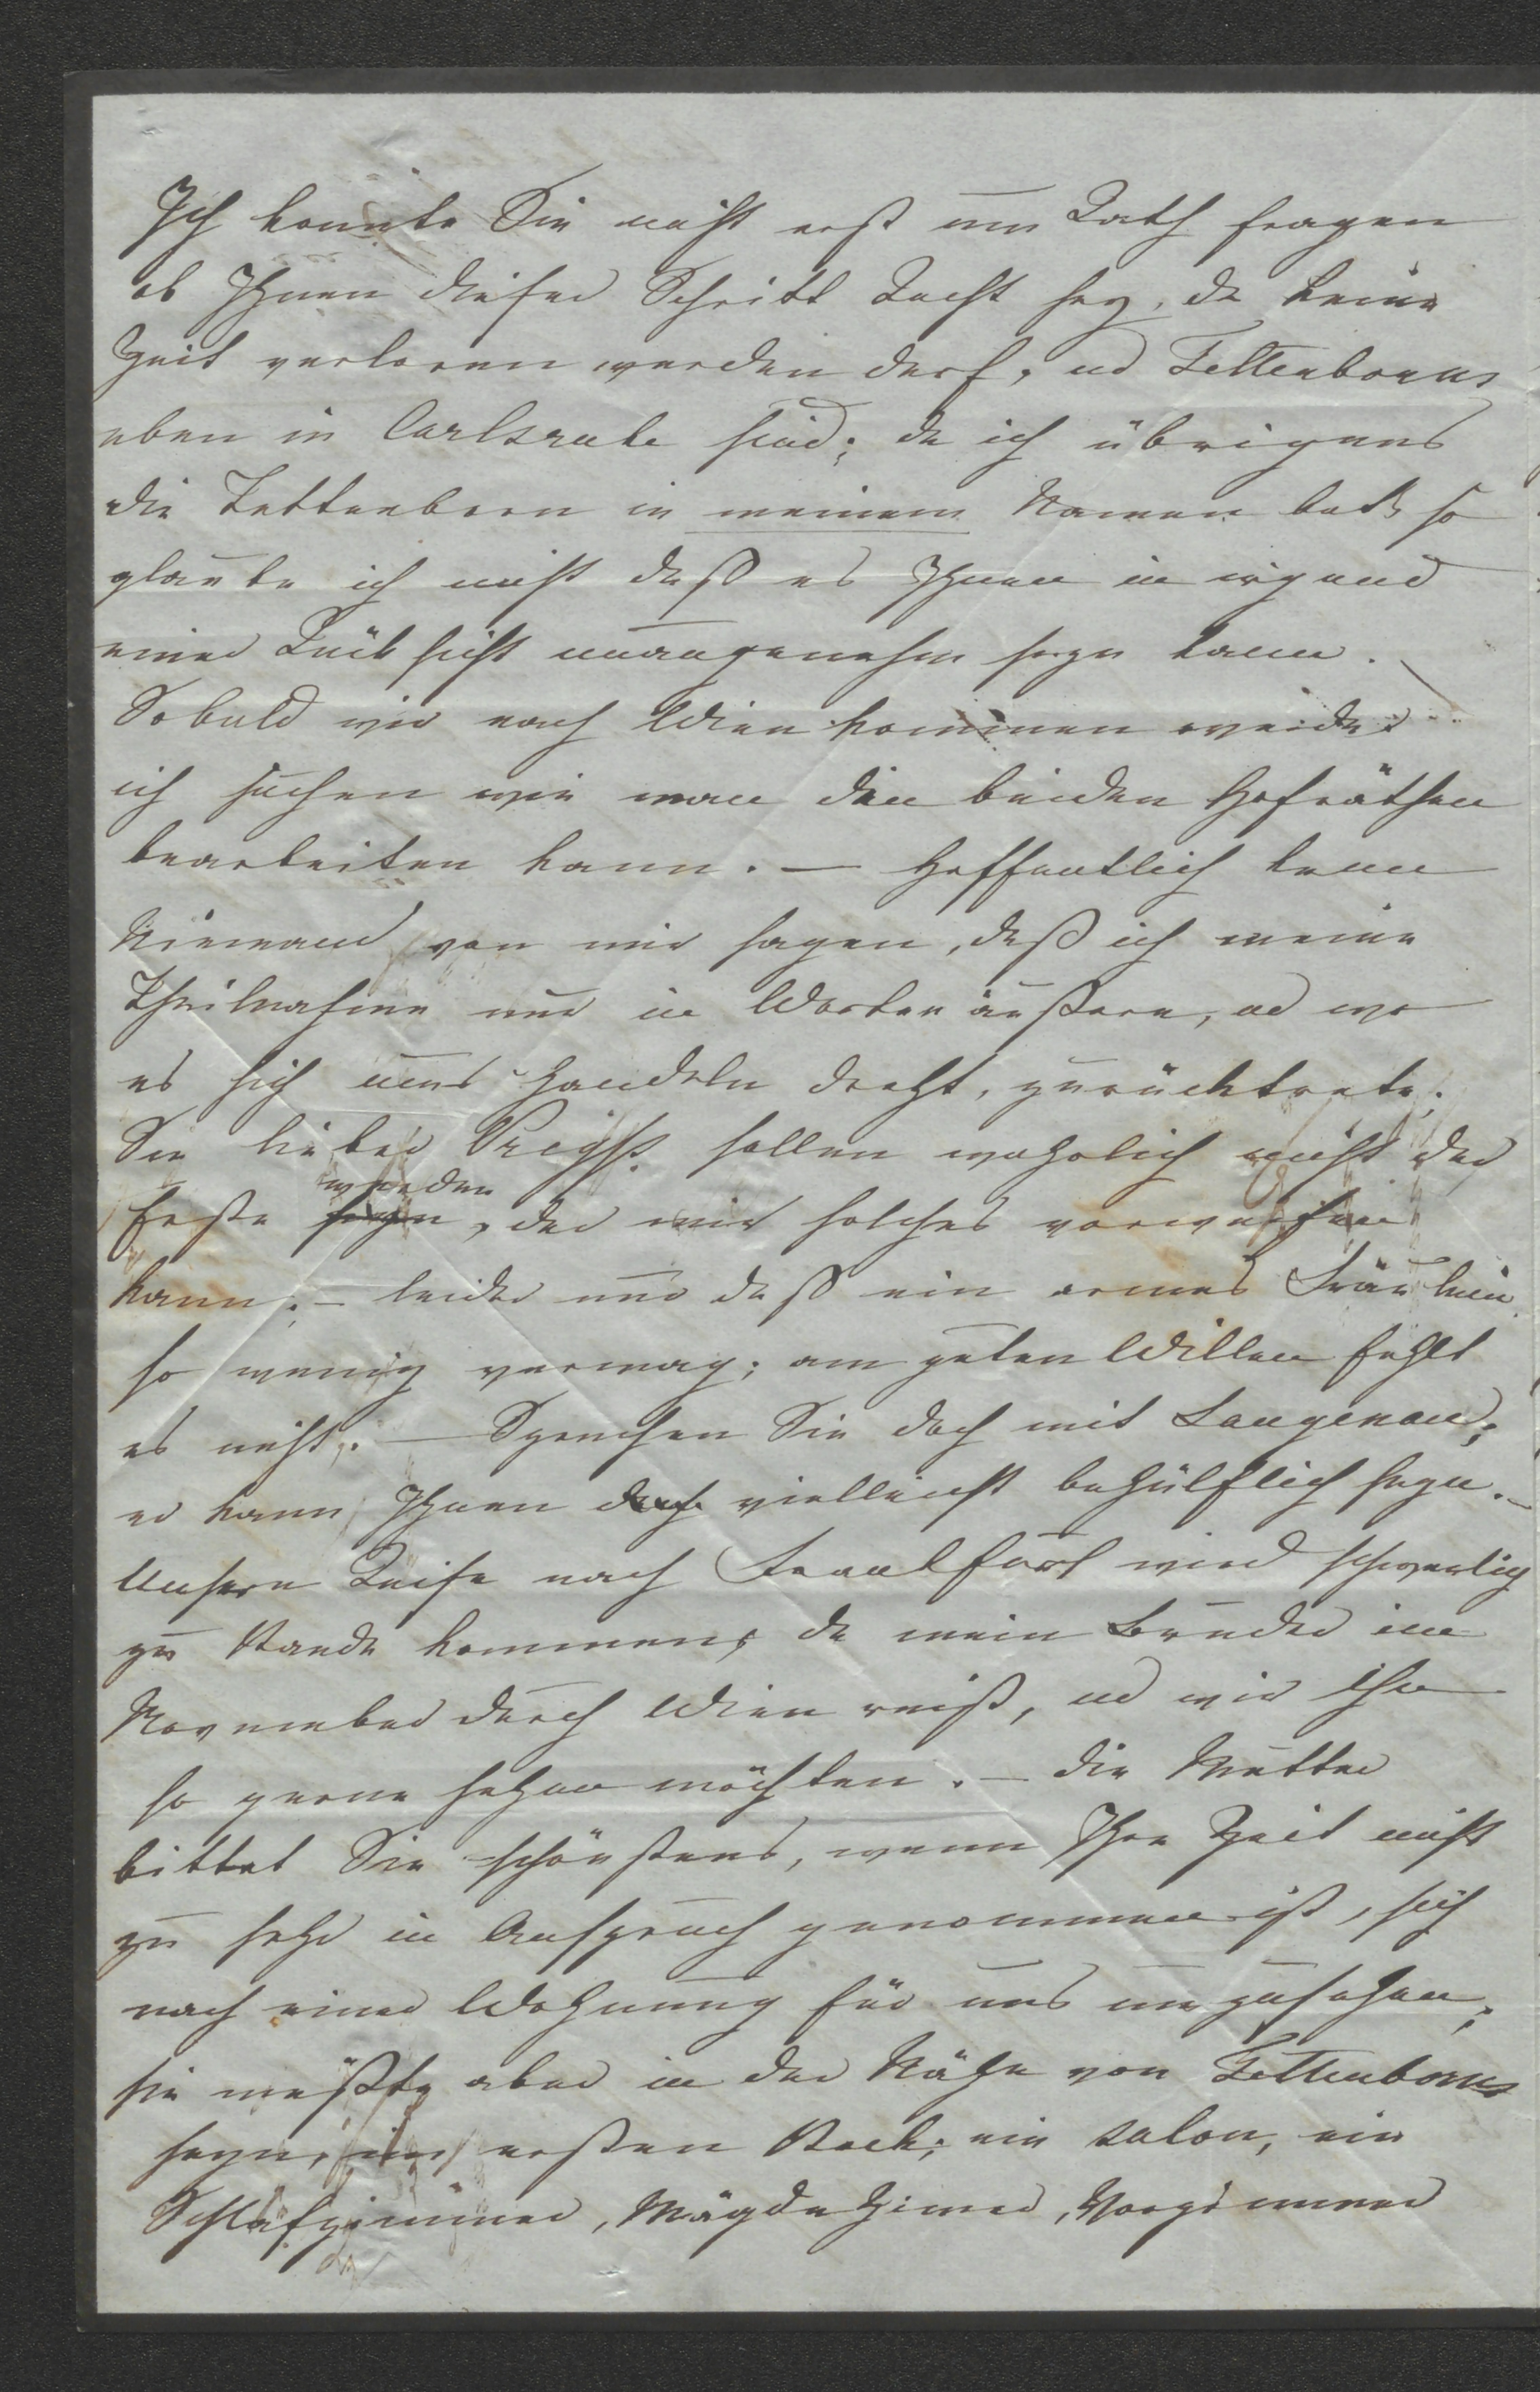 Ich konnte Sie nicht erst um Rath fragen
ob Ihnen dieser Schritt Recht sey, da keine
Zeit verloren werden darf, ud Tettenborns
eben in Carlsruhe sind; da ich übrigens
die Tettenborn in meinem Namen bath so
glaube ich nicht daß es Ihnen in irgend
einer Rücksicht unangenehm seyn kann.
Sobald wir nach Wien kommen werde
ich suchen wie man die beiden Hofräthen
bearbeiten kann. — Hoffentlich kann
Niemand von mir sagen, daß ich meine
Theilnahme nur in Worten äußere, ud wo
es sich ums Handeln dreht, zurücktrete.
Sie lieber sollen wahrlich nicht der
werden
Erste seyn, der mir solches vorwerfen
kann; — leider nur daß ein armes Fräulein
so wenig vermag; am guten Willen fehlt
es nicht. — Sprechen Sie doch mit Langenau;
er kann Ihnen doch vielleicht behülflich seyn. –
Unsere Reise nach Frankfurt wird schwerlich
zu Stande kommen, da mein Bruder im
November durch Wien reist, ud wir ihn
so gerne sehen möchten. — Die Mutter
bittet Sie schönstens, wenn Ihre Zeit nicht
zu sehr in Anspruch genommen ist, sich
nach einer Wohnung für uns umzusehen;
sie müßte aber in der Nähe von Tettenborns
seyn, im ersten Stock; ein Salon, ein
Schlafzimmer, Mägdezimer, Vorzimmer